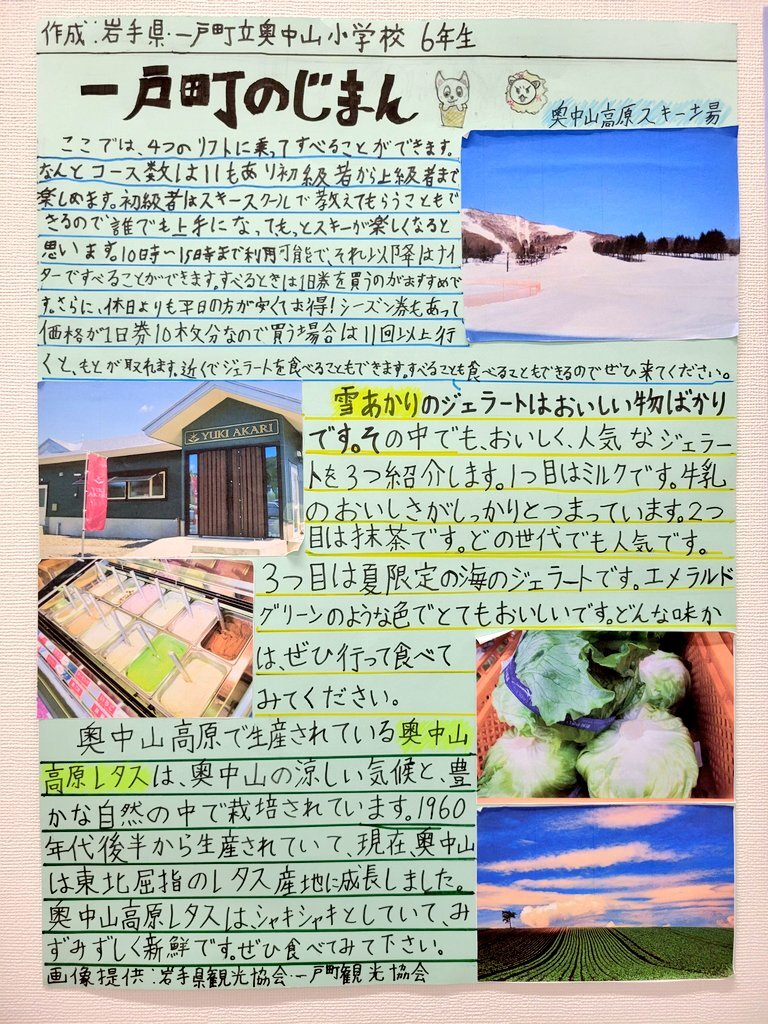 作成:岩手県・一戸町立奥中山小学校 6年生
一戸町のじまん
奥中山高原スキー場
ここでは、4つのリフトに乗ってすべることができます。
なんとコース数は11もあり初級者から上級者まで
楽しめます。初級者はスキースクールで教えてもらうこともで
きるので誰でも上手になってもっとスキーが楽しくなると
思います。10時〜15時まで利用可能で、それ以降はナイ
ターですべることができます。すべるときは1日券を買うのがおすすめで
す。さらに、休日よりも平日の方が安くてお得!シーズン券もあって
価格が1日券10枚分なので買う場合は11回以上行
くと、もとが取れます。近くでジェラートを食べることもできます。すべることも食べることもできるのでぜひ来てください。
YUKI AKARI
雪あかりのジェラートはおいしい物ばかり
です。その中でも、おいしく、人気なジェラー
トを3つ紹介します。1つ目はミルクです。牛乳
のおいしさがしっかりとつまっています。2つ
目は抹茶です。どの世代でも人気です。
3つ目は夏限定の海のジェラートです。エメラルド
グリーンのような色でとてもおいしいです。どんな味か
は、ぜひ行って食べて
みてください。
奥中山高原で生産されている奥中山
高原レタスは、奥中山の涼しい気候と、豊
かな自然の中で栽培されています。1960
年代後半から生産されていて、現在、奥中山
は東北屈指のレタス産地に成長しました。
奥中山高原レタスは、シャキシャキとしていて、み
ずみずしく新鮮です。ぜひ食べてみて下さい。
画像提供:岩手県観光協会・一戸町観光協会